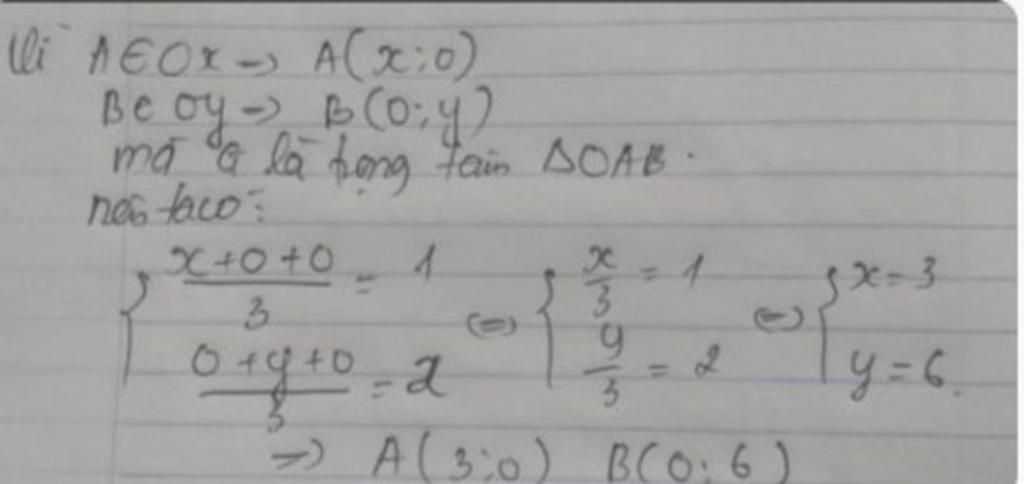 Vì A ∈ Ox → A(x;0)
B ∈ Oy → B(0;y)
mà G là trọng tâm ΔOAB.
nên ta có:
{ (x+0+0)/3 = 1 ⇔ { x/3 = 1 ⇔ { x = 3
(0+y+0)/3 = 2 y/3 = 2 y = 6.
→ A(3;0) B(0;6)